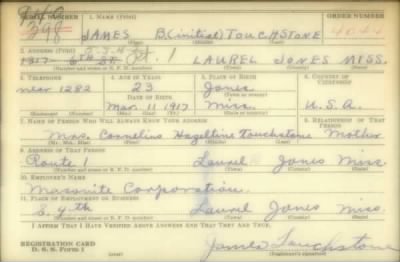 SERIAL NUMBER 1. NAME (Print) ORDER NUMBER
298
JAMES B(initial) TOUCHSTONE 4044
(First) (Middle) (Last)
2. ADDRESS (Print)
1317 6th St Rt. 1 LAUREL JONES MISS.
(Number and street or R. F. D. number) (Town) (County) (State)
3. TELEPHONE 4. AGE IN YEARS 5. PLACE OF BIRTH 6. COUNTRY OF CITIZENSHIP
near 1282 23 Jones
DATE OF BIRTH
Mar. 11 1917 Miss. U.S.A.
7. NAME OF PERSON WHO WILL ALWAYS KNOW YOUR ADDRESS 8. RELATIONSHIP OF THAT PERSON
Mrs. Cornelina Hazeltine Touchstone Mother
(Mr., Mrs., Miss) (First) (Middle) (Last)
9. ADDRESS OF THAT PERSON
Route 1 Laurel Jones Miss.
(Number and street or R. F. D. number) (Town) (County) (State)
10. EMPLOYER'S NAME
Masonite Corporation.
11. PLACE OF EMPLOYMENT OR BUSINESS
S. 4th Laurel Jones Miss.
(Number and street or R. F. D. number) (Town) (County) (State)
I AFFIRM THAT I HAVE VERIFIED ABOVE ANSWERS AND THAT THEY ARE TRUE.
REGISTRATION CARD
D. S. S. Form 1 (over) James Touchstone
(Registrant's signature)